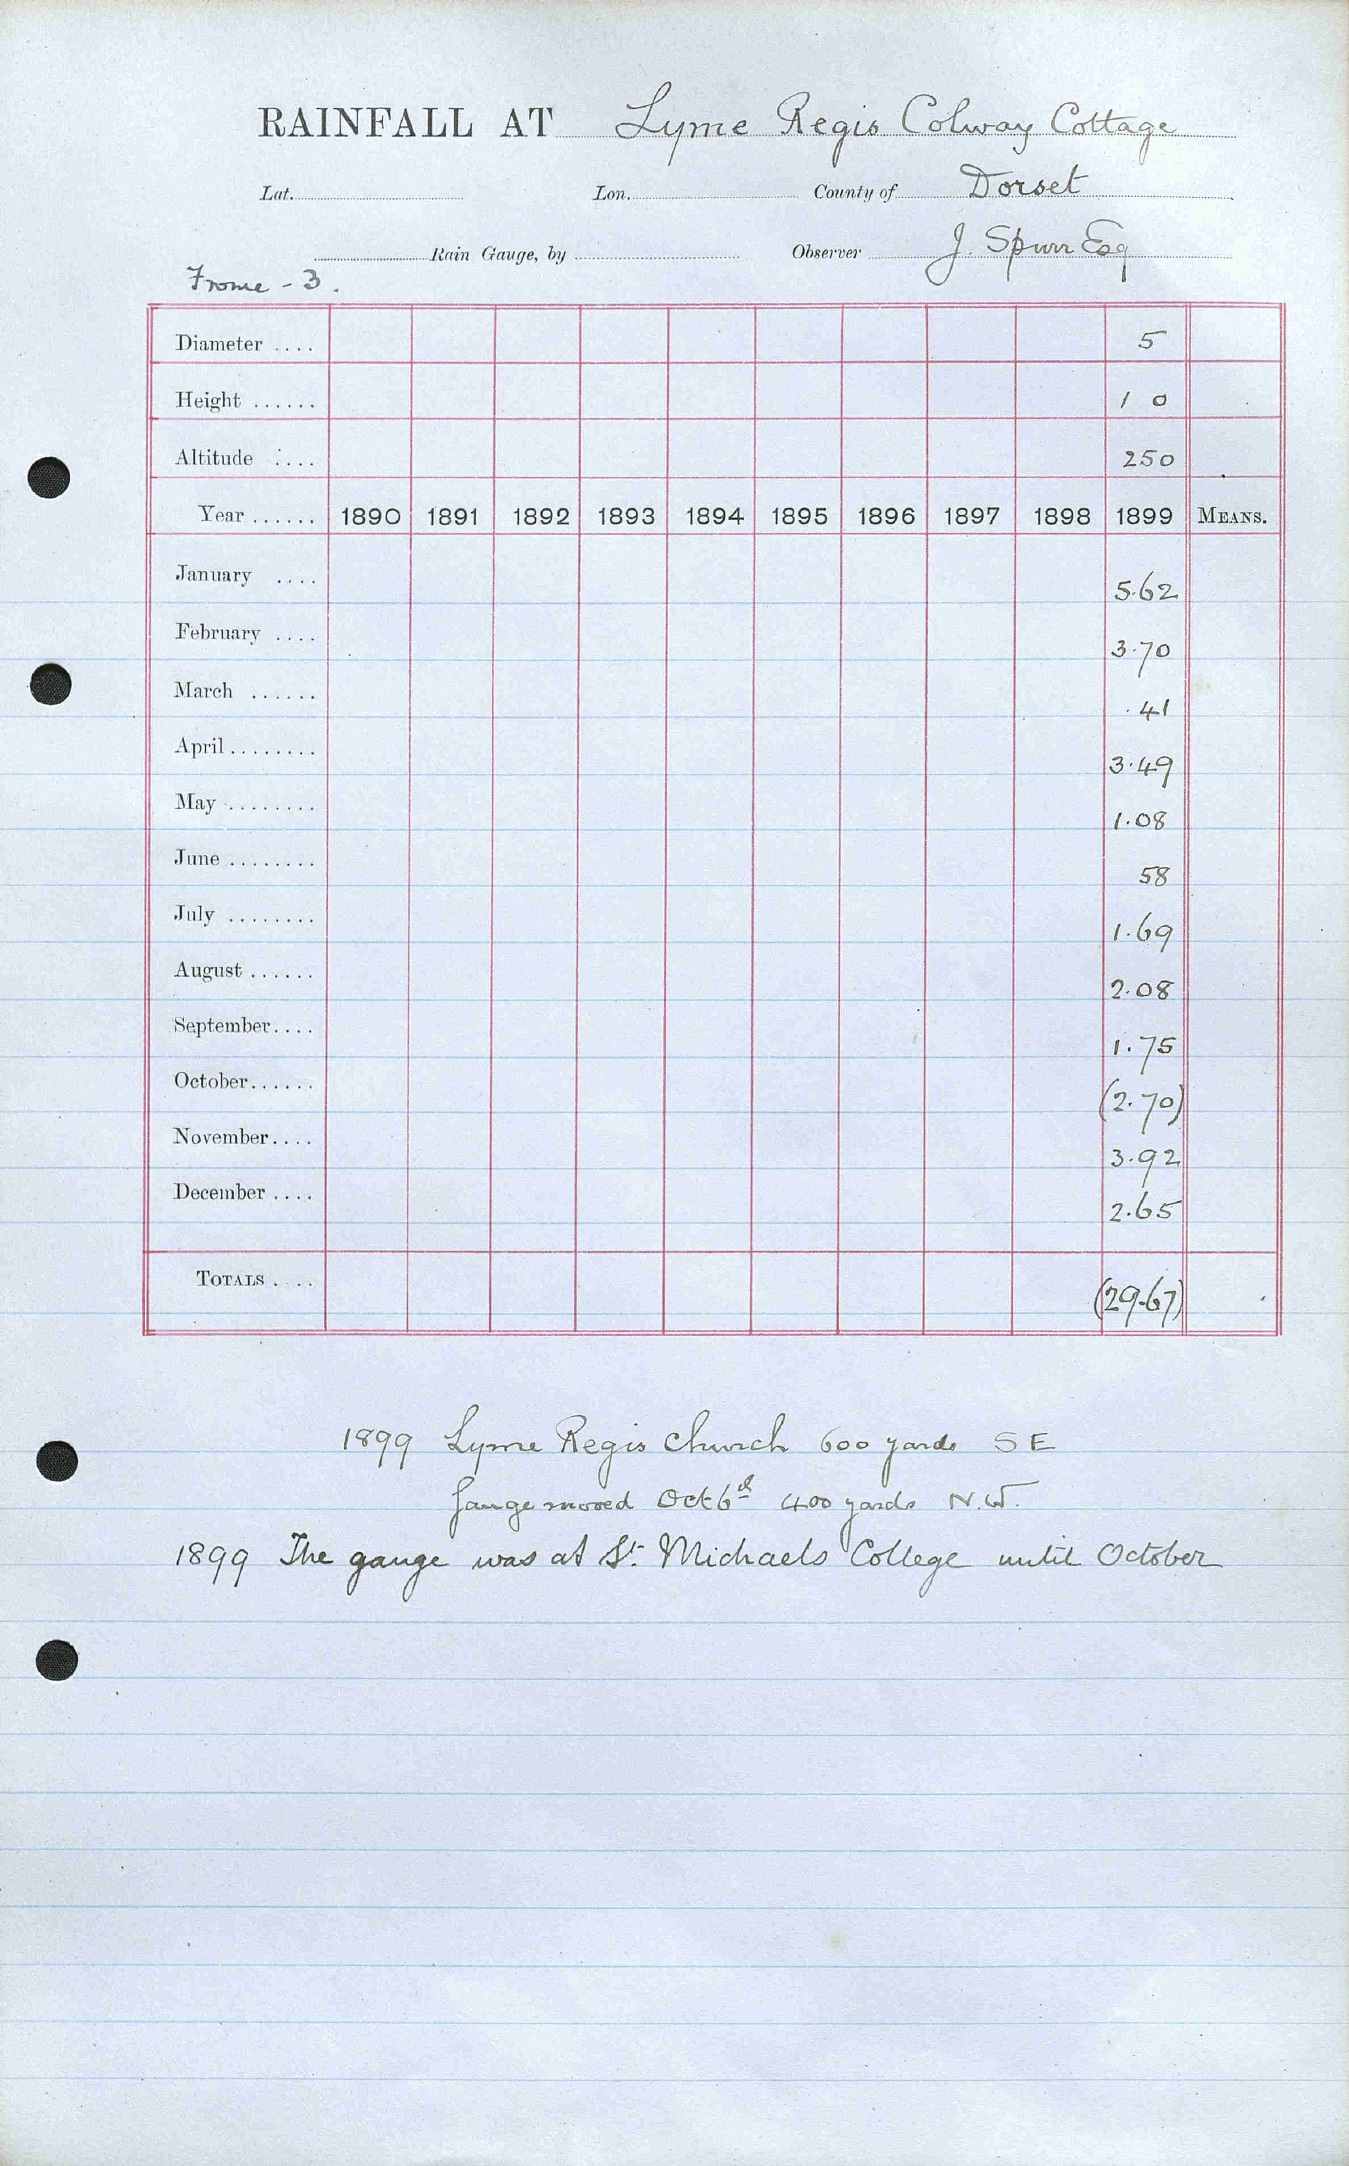 RAINFALL AT Lyme Regis Colway Cottage
Lat. Lon. County of Dorset
Rain Gauge, by Observer J. Spurr Esq
Frome - 3.
Diameter .... 5
Height ...... 1 0
Altitude .... 250
Year ...... 1890 1891 1892 1893 1894 1895 1896 1897 1898 1899 MEANS.
January .... 5.62
February .... 3.70
March ...... .41
April ........ 3.49
May ........ 1.08
June ........ 58
July ........ 1.69
August ...... 2.08
September .... 1.75
October ...... (2.70)
November .... 3.92
December .... 2.65
TOTALS .... (29.67)
1899 Lyme Regis Church 600 yards SE
gauge moved Oct 6th 400 yards N.W.
1899 The gauge was at St. Michaels College until October